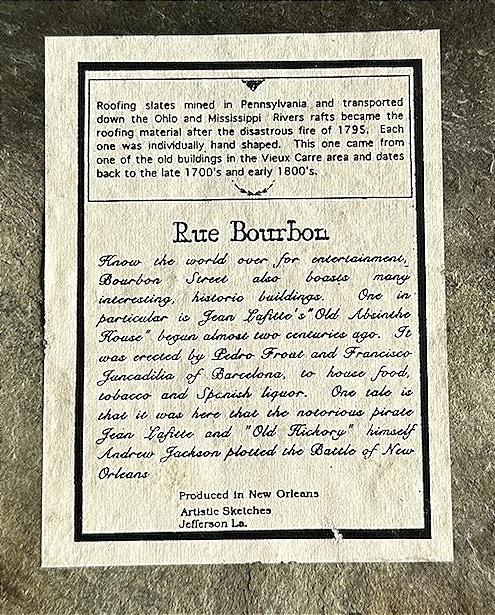 Roofing slates mined in Pennsylvania and transported
down the Ohio and Mississippi Rivers rafts became the
roofing material after the disastrous fire of 1795. Each
one was individually hand shaped. This one came from
one of the old buildings in the Vieux Carre area and dates
back to the late 1700's and early 1800's.
Rue Bourbon
Know the world over for entertainment,
Bourbon Street also boasts many
interesting, historic buildings. One in
particular is Jean Lafitte's "Old Absinthe
House" begun almost two centuries ago. It
was erected by Pedro Front and Francisco
Juncadilia of Barcelona, to house food,
tobacco and Spanish liquor. One tale is
that it was here that the notorious pirate
Jean Lafitte and "Old Hickory" himself
Andrew Jackson plotted the Battle of New
Orleans
Produced in New Orleans
Artistic Sketches
Jefferson La.